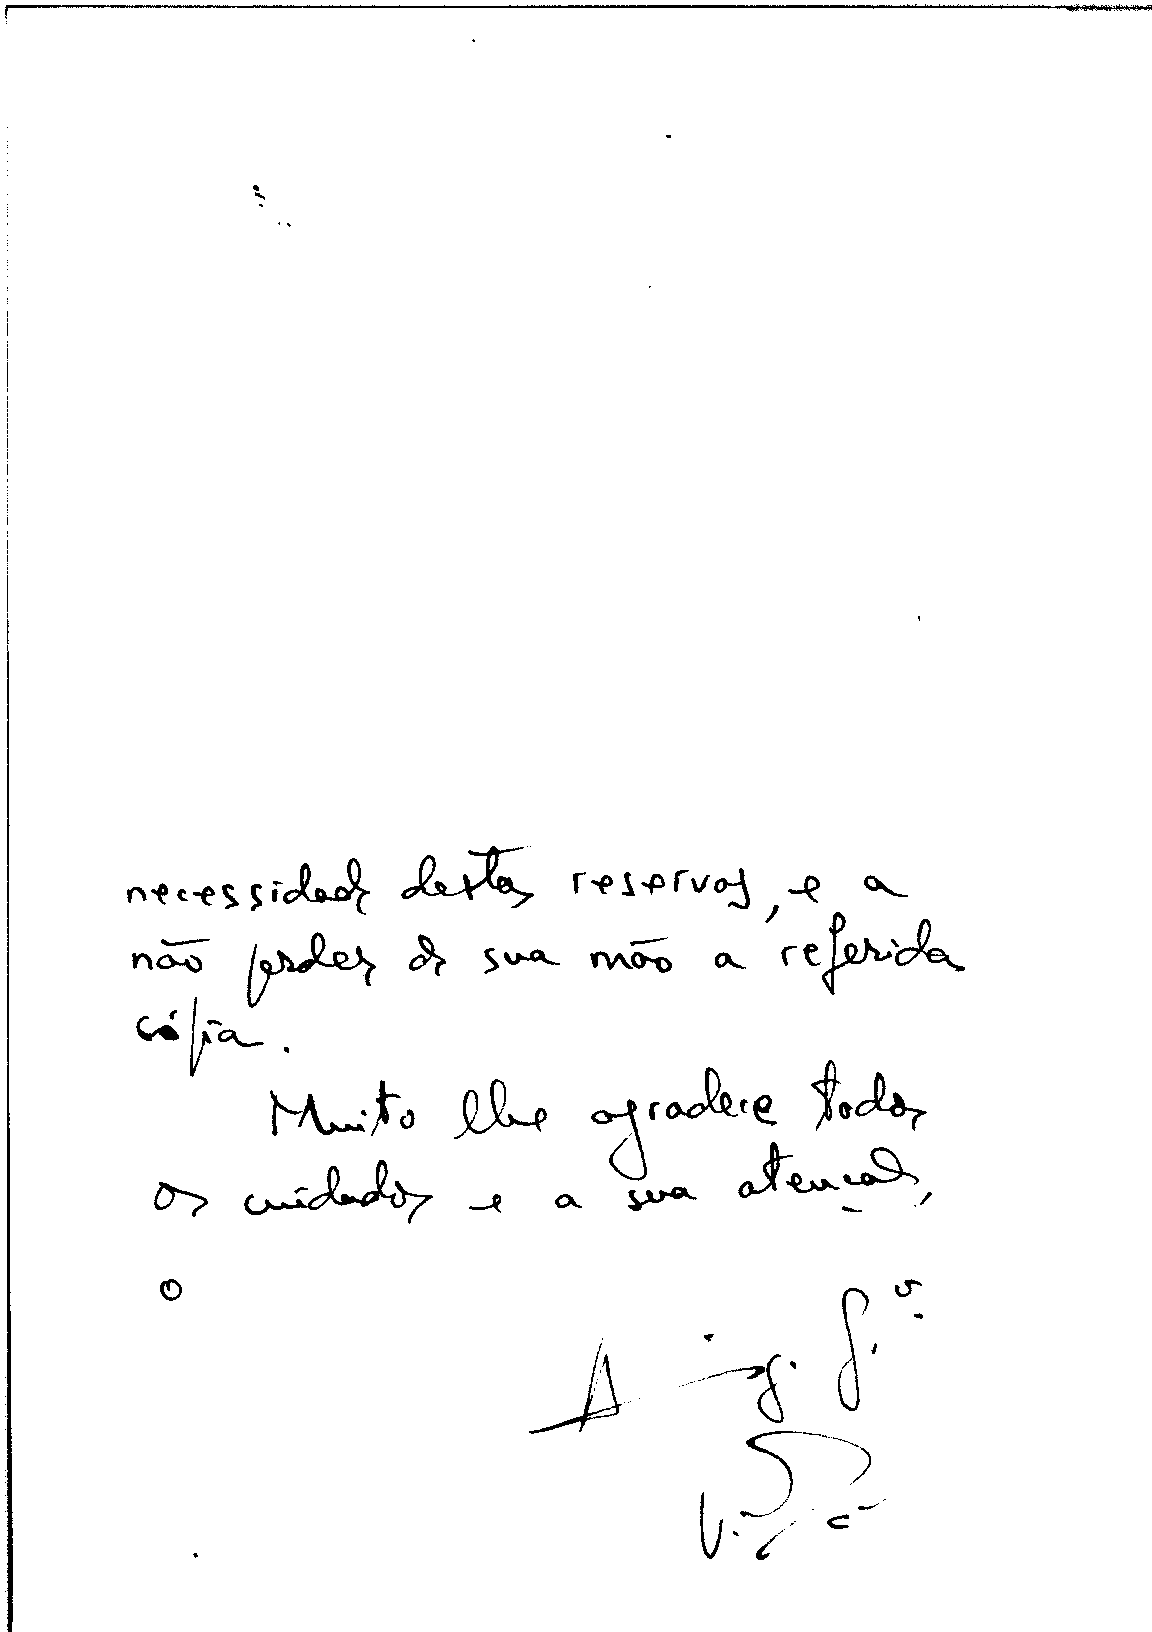 necessidade destas reservas, e a
não perder de sua mão a referida
cópia.
Muito lhe agradece todos
os cuidados e a sua atenção,
o